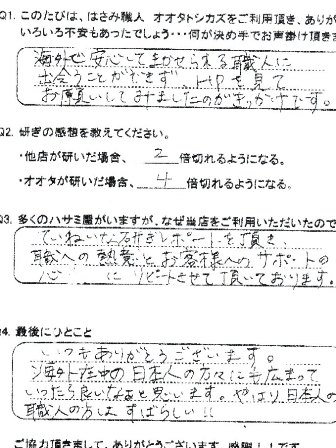 Q1. このたびは、はさみ職人 オオタトシカズをご利用頂き、ありが
いろいろ不安もあったでしょう・・・何が決め手でお声掛け頂きま
海外で安心してまかせられる職人に
出会うことができず、HPを見て
お願いしてみましたのがきっかけです。
Q2. 研ぎの感想を教えてください。
・他店が研いだ場合、 2 倍切れるようになる。
・オオタが研いだ場合、 4 倍切れるようになる。
Q3. 多くのハサミ屋がいますが、なぜ当店をご利用いただいたので
ていねいな研ぎレポートを頂き、
職への熱意とお客様へのサポートの
心 にリピートさせて頂いております。
Q4. 最後にひとこと
いつもありがとうございます。
海外在中の日本人の方々にも広まって
いったら良いなぁと思います。やはり日本人の
職人の方は すばらしい!!
ご協力頂きまして、ありがとうございます。感謝!!です。